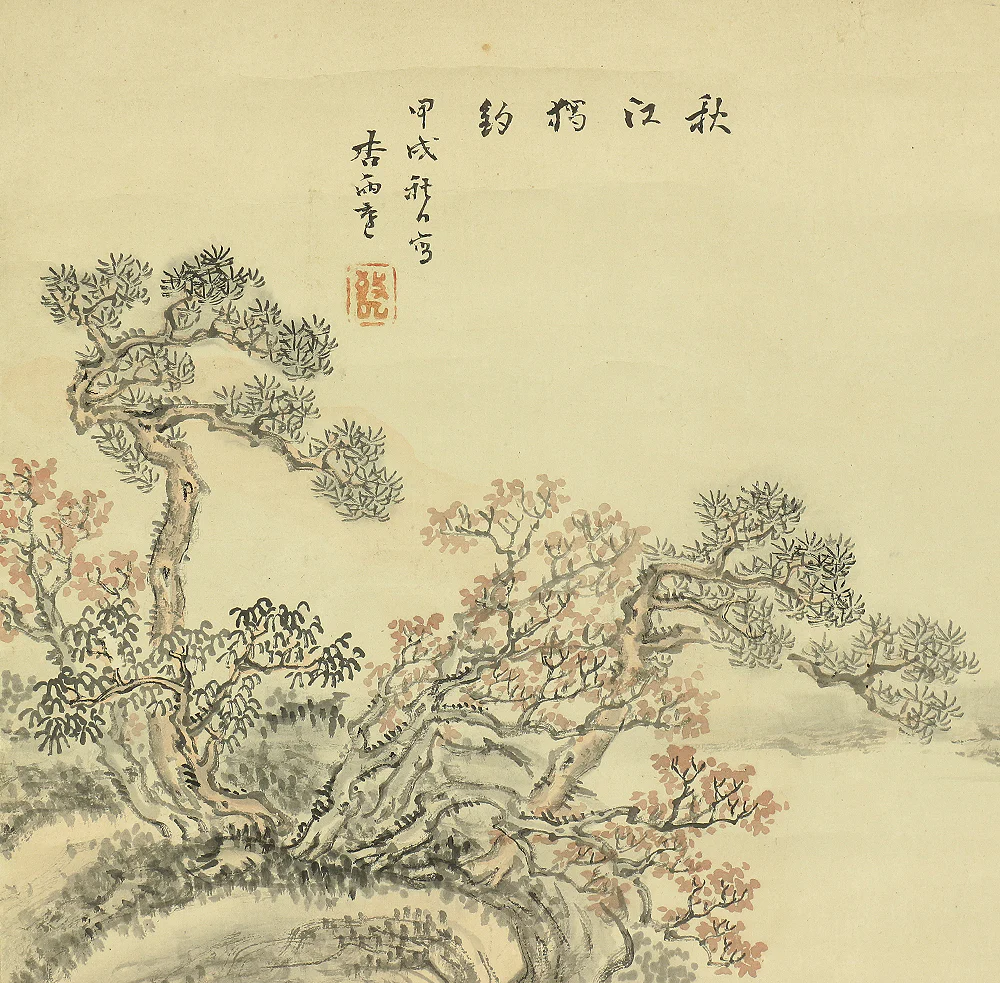 秋江獨釣
甲戌秋日寫
杏雨遠